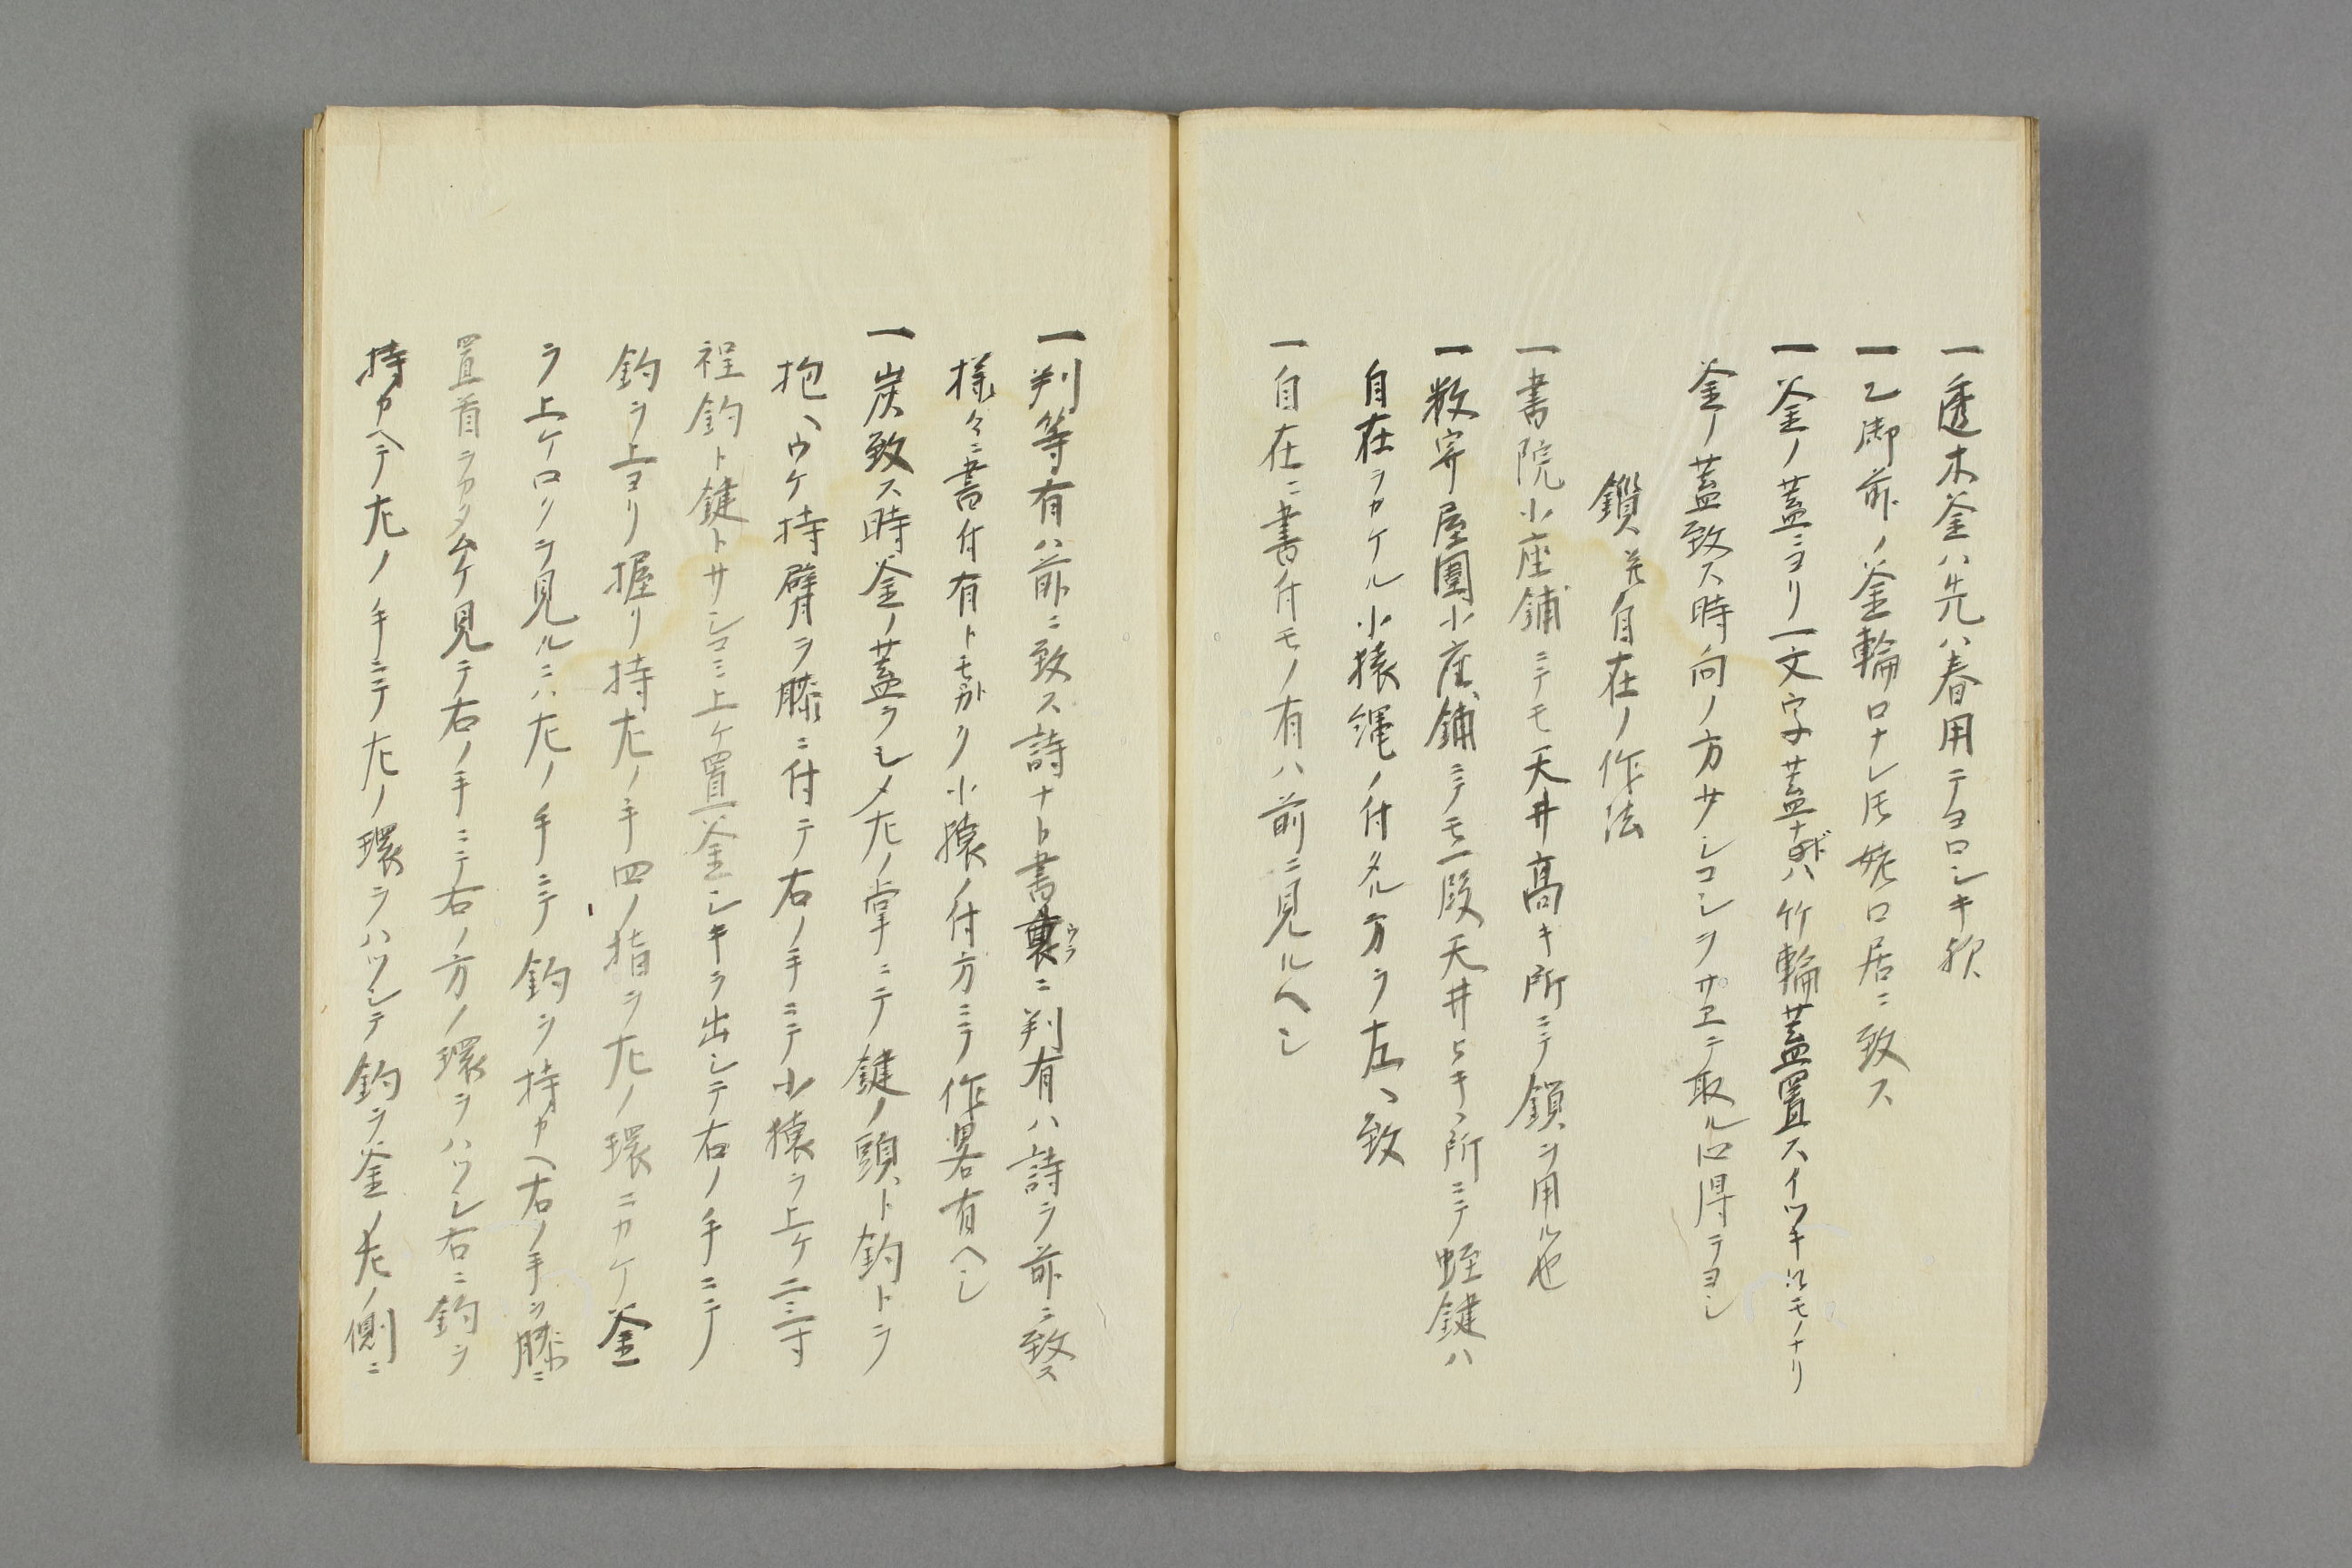 一透木釜ハ先ハ春用テヨロシキ歟
一乙御前ノ釜輪口ナレ𪜈姥口居ニ致ス
一釜ノ蓋ニヨリ一文字蓋ナドハ竹輪蓋置スイツキルモノナリ
釜ノ蓋致ス時向ノ方サシコシヲサヱテ取ル心得テヨシ
鎖并自在ノ作法
一書院小座鋪ニテモ天井高キ所ニテ鎖ヲ用ル也
一数寄屋圍小座鋪ニテモ一段天井ヒキヽ所ニテ蛭鍵ハ
自在ヲカケル小猿縄ノ付タル方ヲ左ヘ致
一自在ニ書付モノ有ハ前ニ見ルヘシ
一判等有ハ前ニ致ス詩ナト書裏ウラニ判有ハ詩ヲ前ニ致ス
様々ニ書付有トモ小猿ノ付方ニテ作畧有ヘシ
一炭致ス時釜ノ蓋ヲシメ左ノ掌ニテ鍵ノ頭ト釣トヲ
抱ヘウケ持臂ヲ膝ニ付テ右ノ手ニテ小猿ヲ上ケ二三寸
程釣ト鍵トサシコミ上ケ置釜シキヲ出シテ右ノ手ニテ
釣ヲ上ヨリ握リ持左ノ手四ノ指ヲ左ノ環ニカケ釜
ヲ上ケロクヲ見ルニハ左ノ手ニテ釣ヲ持カヘ右ノ手ヲ膝ニ
置首ヲカタムケ見テ右ノ手ニテ右ノ方ノ環ヲハツシ右ニ釣ヲ
持カヘテ左ノ手ニテ左ノ環ヲハツシテ釣ヲ釜ノ左ノ側ニ